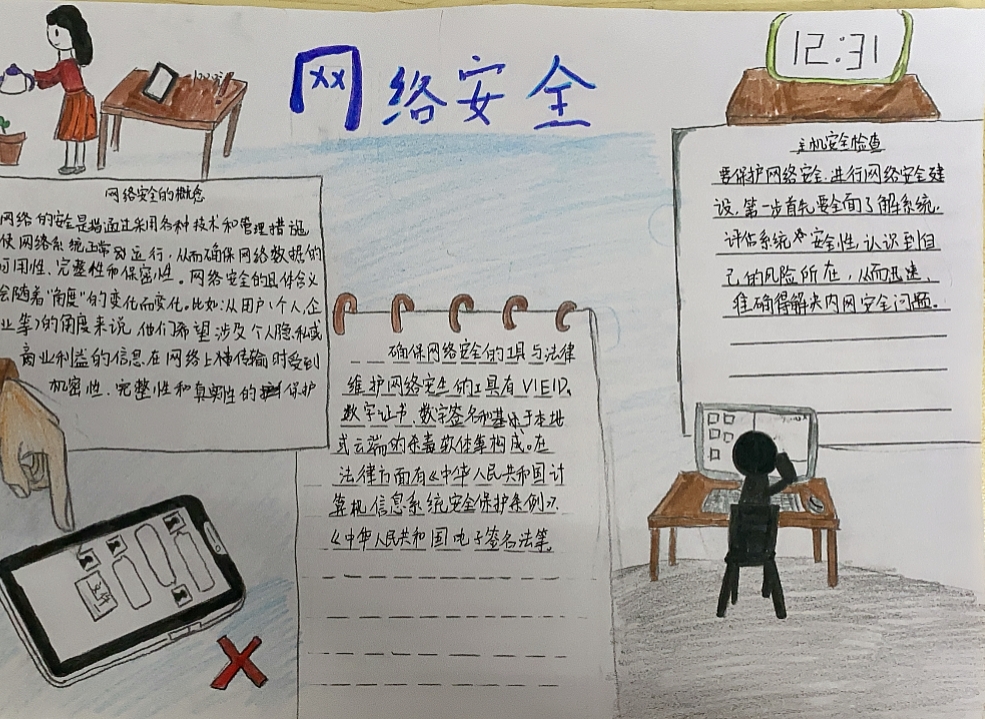 网络安全
12:31
网络安全的概念
网络的安全是指通过采用各种技术和管理措施,
使网络系统正常的运行,从而确保网络数据的
可用性、完整性和保密性。网络安全的具体含义
会随着“角度”的变化而变化。比如:从用户(个人、企
业等)的角度来说,他们希望涉及个人隐私或
商业利益的信息在网络上传输时受到
机密性、完整性和真实性的保护
主机安全检查
要保护网络安全,进行网络安全建
设,第一步首先要全面了解系统,
评估系统安全性,认识到自
己的风险所在,从而迅速、
准确得解决内网安全问题.
确保网络安全的工具与法律
维护网络安全的工具有VIEID、
数字证书、数字签名和基于本地
或云端的杀毒软体等构成。在
法律方面有《中华人民共和国计
算机信息系统安全保护条例》、
《中华人民共和国电子签名法等,
文件